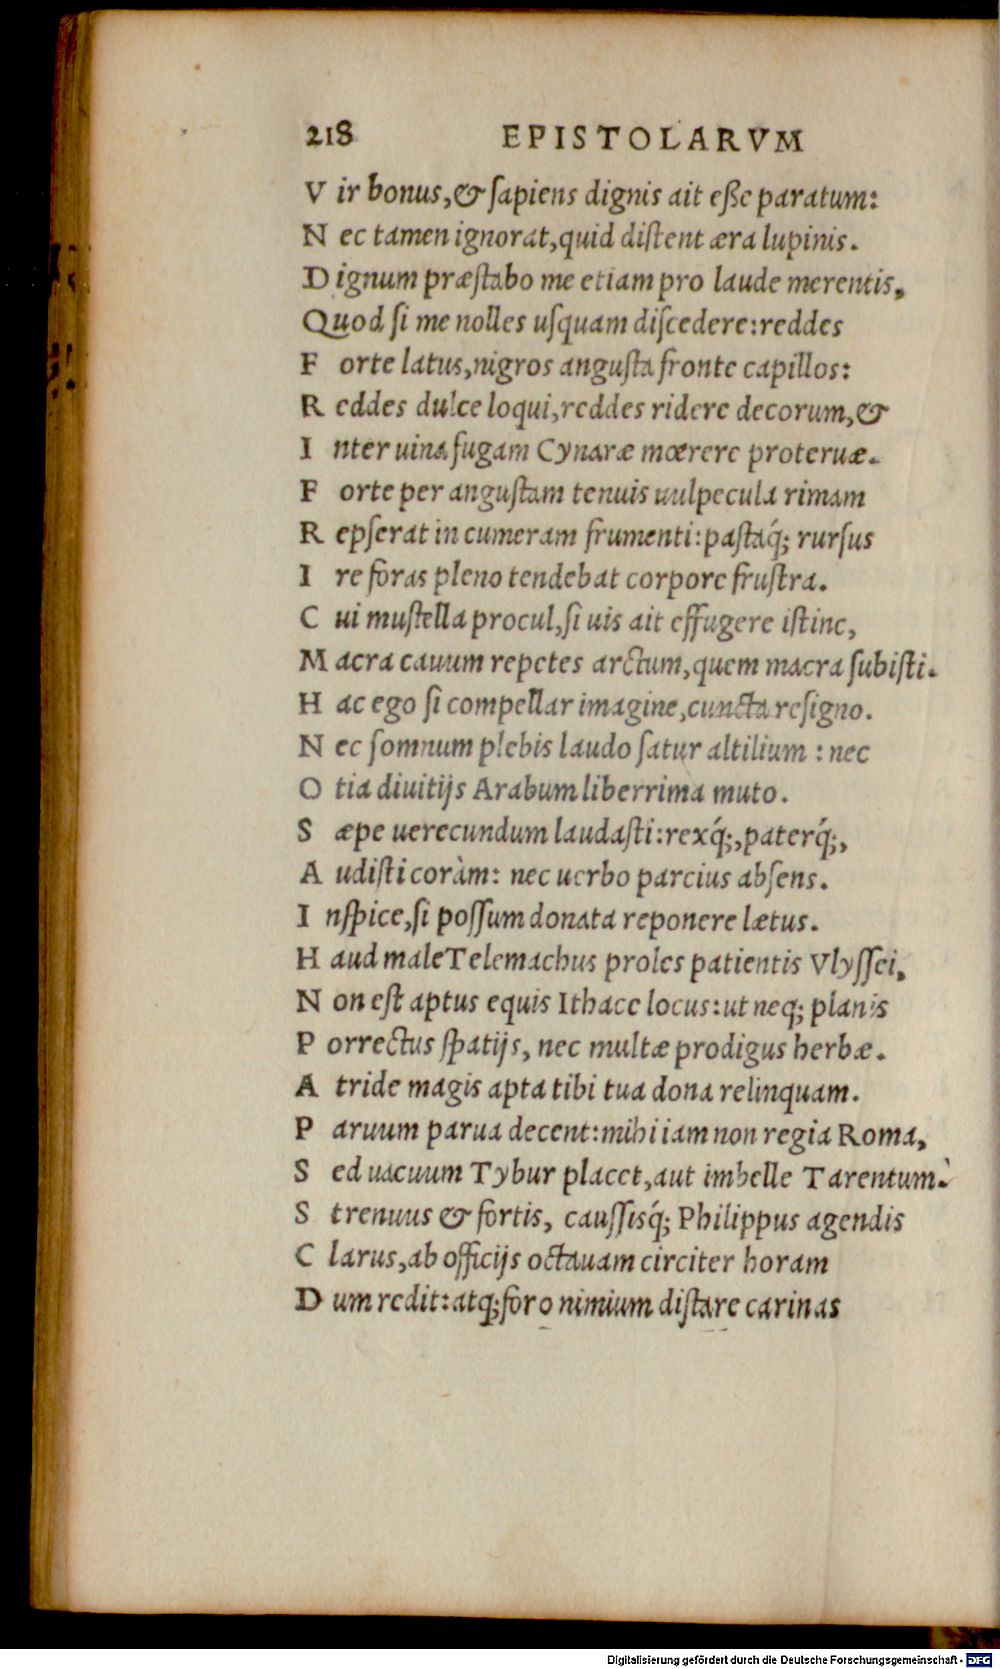 218 EPISTOLARVM
V ir bonus,& ſapiens dignis ait eße paratum:
N ec tamen ignorat,quid diſtent æra lupinis.
D ignum præſtabo me etiam pro laude merentis,
Quod ſi me nolles uſquam diſcedere:reddes
F orte latus,nigros anguſta fronte capillos:
R eddes dulce loqui,reddes ridere decorum,&
I nter uina fugam Cynaræ mœrere proteruæ.
F orte per anguſtam tenuis uulpecula rimam
R epſerat in cumeram frumenti:paſtaq́; rurſus
I re foras pleno tendebat corpore fruſtra.
C ui muſtella procul,ſi uis ait effugere iſtinc,
M acra cauum repetes arctum,quem macra ſubiſti.
H ac ego ſi compellar imagine,cuncta reſigno.
N ec ſomnum plebis laudo ſatur altilium : nec
O tia diuitijs Arabum liberrima muto.
S æpe uerecundum laudaſti:rexq́;,paterq́;,
A udiſti coràm: nec uerbo parcius abſens.
I nſpice,ſi poſſum donata reponere lætus.
H aud male Telemachus proles patientis Vlyſſei,
N on eſt aptus equis Ithace locus:ut neq; planis
P orrectus ſpatijs, nec multæ prodigus herbæ.
A tride magis apta tibi tua dona relinquam.
P aruum parua decent:mihi iam non regia Roma,
S ed uacuum Tybur placet,aut imbelle Tarentum.
S trenuus & fortis, cauſſisq́; Philippus agendis
C larus,ab officijs octauam circiter horam
D um redit:atq;foro nimium diſtare carinas
Digitalisierung gefördert durch die Deutsche Forschungsgemeinschaft - DFG